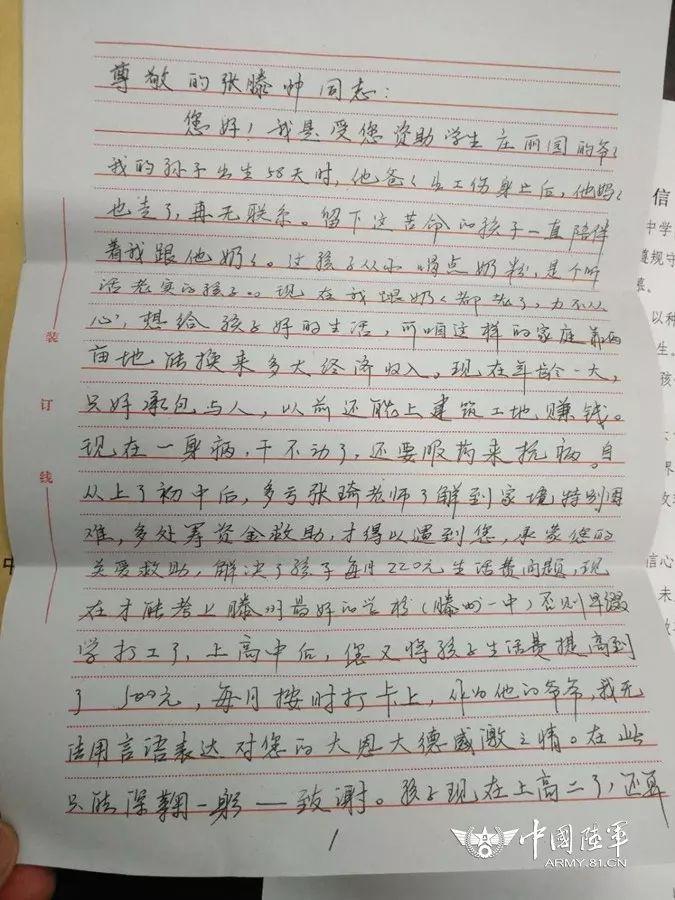 尊敬的张滕帅同志：
您好！我是受您资助学生庄丽国的爷々
我的孙子出生58天时，他爸々出工伤身亡后，他妈々
也走了，再无联系。留下这苦命的孩子一直陪伴
着我跟他奶々。这孩子从小喝点奶粉，是个听
话老实的孩子。现在我跟奶々都老了，力不从
心，想给孩子好的生活，可咱这样的家庭靠两
亩地能换来多大经济收入。现在年龄一大，
只好承包与人，以前还能上建筑工地赚钱。
现在一身病，干不动了，还要服药来抗病。自
从上了初中后，多亏张琦老师了解到家境特别困
难，多处筹资金救助，才得以遇到您，承蒙您的
关爱救助，解决了孩子每月220元生活费问题，现
在才能考上滕州最好的学校（滕州一中）否则早辍
学打工了，上高中后，您又将孩子生活费提高到
了500元，每月按时打卡上，作为他的爷爷，我无
法用言语表达对您的大恩大德感激之情。在此
只能深鞠一躬——致谢。孩子现在上高二了，还再
1
装
订
线
信
中学
遵规守
以种
生。
孩
果
信心
未
中
中國陸軍
ARMY.81.CN